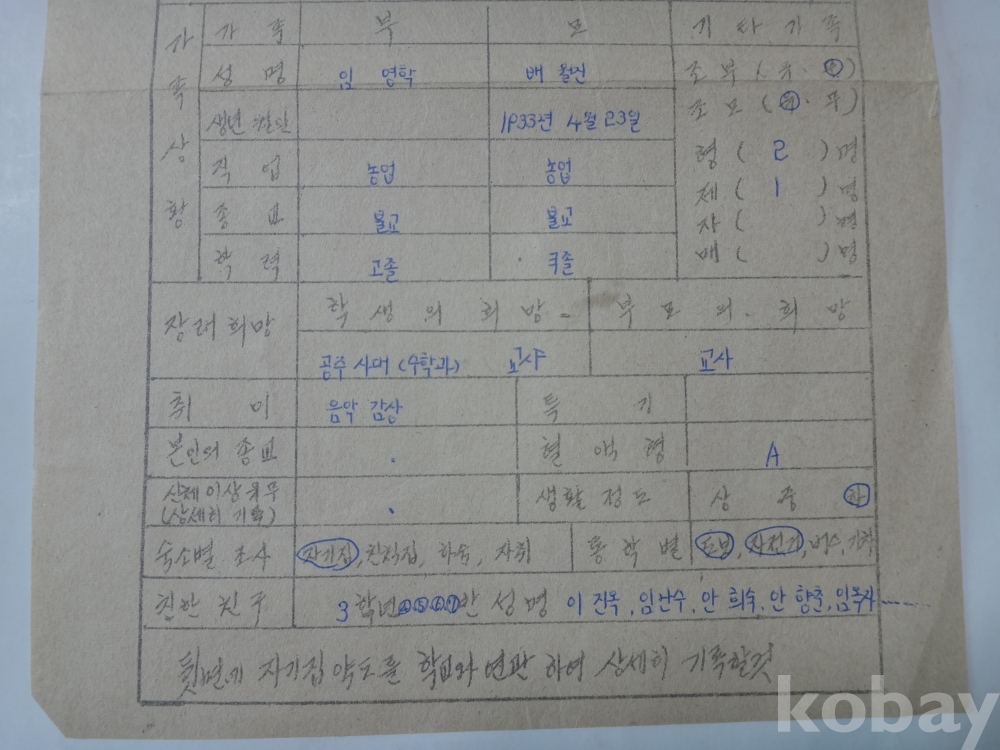 가족상황
가족 부 모 기타가족
성명 임 영학 배 월신 조부(유·무)
조모(유·무)
생년월일 1933년 4월 23일
형( 2 )명
직업 농업 농업
제( 1 )명
종교 불교 불교 자( )명
학력 고졸 국졸 매( )명
장래희망 학생의 희망 부모의 희망
공주 사대 (수학과) 교사 교사
취미 음악 감상 특기
본인의 종교 혈액형 A
신체이상유무 생활정도 상 중 하
(상세히 기록)
숙소별 조사 자기집, 친척집, 하숙, 자취 통학별 도보, 자전거, 버스, 기차
친한 친구 3학년 ④⑤⑥⑦반 성명 이 진옥, 임난수, 안 희숙, 안 향준,
뒷면에 자기집약도를 학교와 연관 하여 상세히 기록할것
kobay